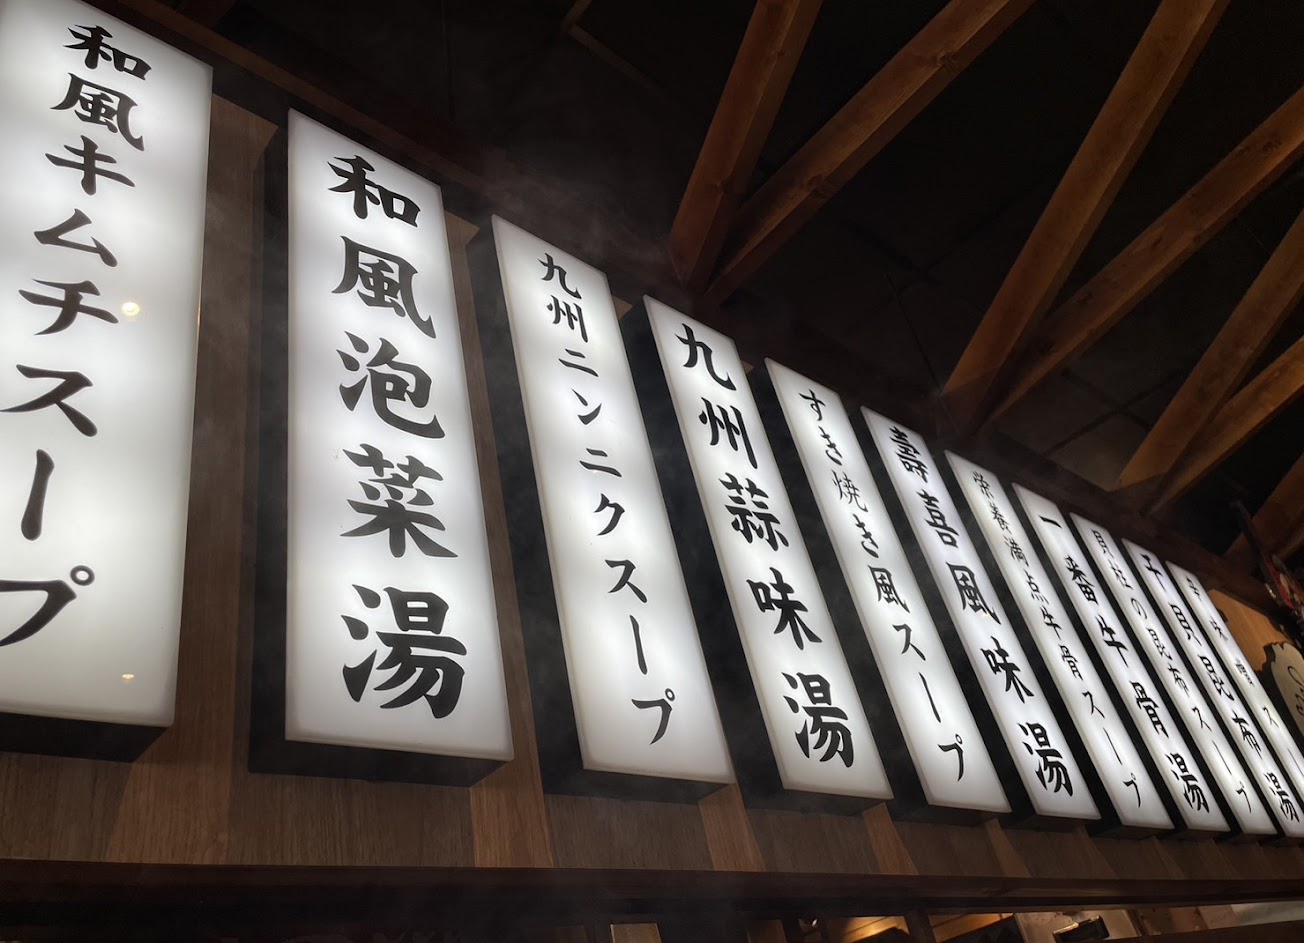 和風キムチスープ
和風泡菜湯
九州ニンニクスープ
九州蒜味湯
すき焼き風スープ
壽喜風味湯
栄養満点牛骨スープ
一番牛骨湯
貝柱の昆布スープ
干貝昆布湯